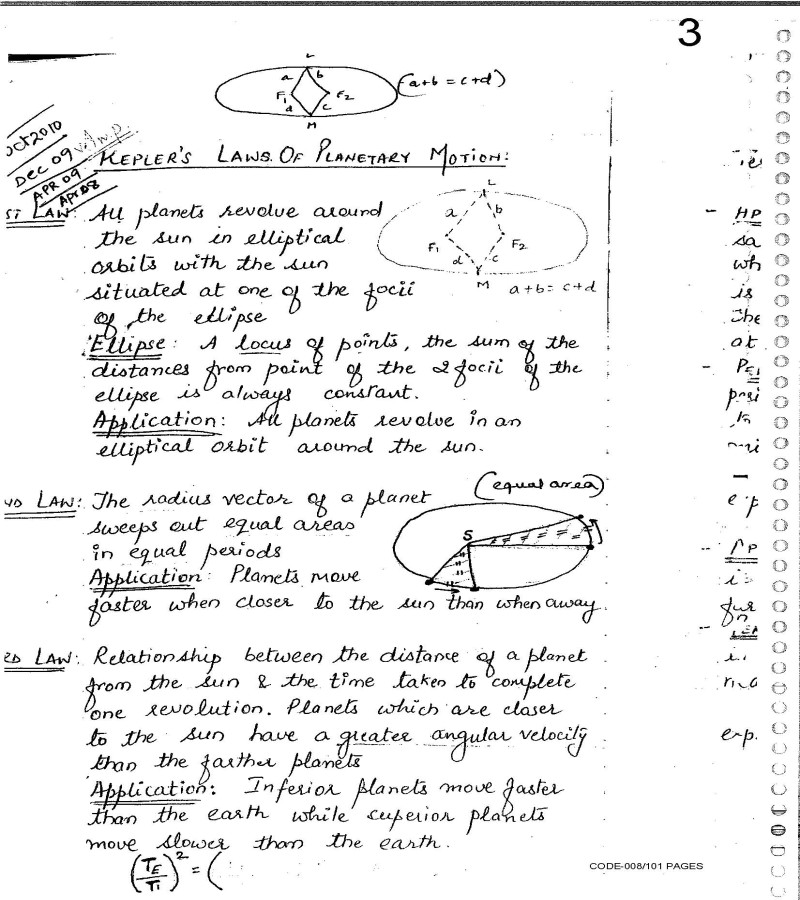 3
L
a b
F1 F2
d c
M
(a+b = c+d)
Oct 2010
Dec 09
APR 09
Apr 08
V. Imp.
KEPLER'S LAWS OF PLANETARY MOTION:
ST LAW: All planets revolve around
the sun in elliptical
orbits with the sun
situated at one of the focii
of the ellipse
L
a b
F1 F2
d c
M a+b = c+d
Ellipse: A locus of points, the sum of the
distances from point of the 2 focii of the
ellipse is always constant.
Application: All planets revolve in an
elliptical orbit around the sun.
ND LAW: The radius vector of a planet
sweeps out equal areas
in equal periods
(equal area)
S
Application: Planets move
faster when closer to the sun than when away.
RD LAW: Relationship between the distance of a planet
from the sun & the time taken to complete
one revolution. Planets which are closer
to the sun have a greater angular velocity
than the farther planets
Application: Inferior planets move faster
than the earth while superior planets
move slower than the earth.
(TE/T1)² = (
- HP
sa
wh
is
the
at
CODE-008/101 PAGES